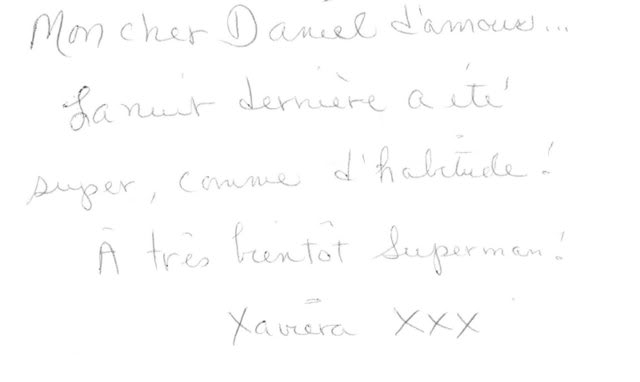 Mon cher Daniel d'amour...
La nuit dernière a été
super, comme d'habitude!
À très bientôt Superman!
Xaviéra XXX